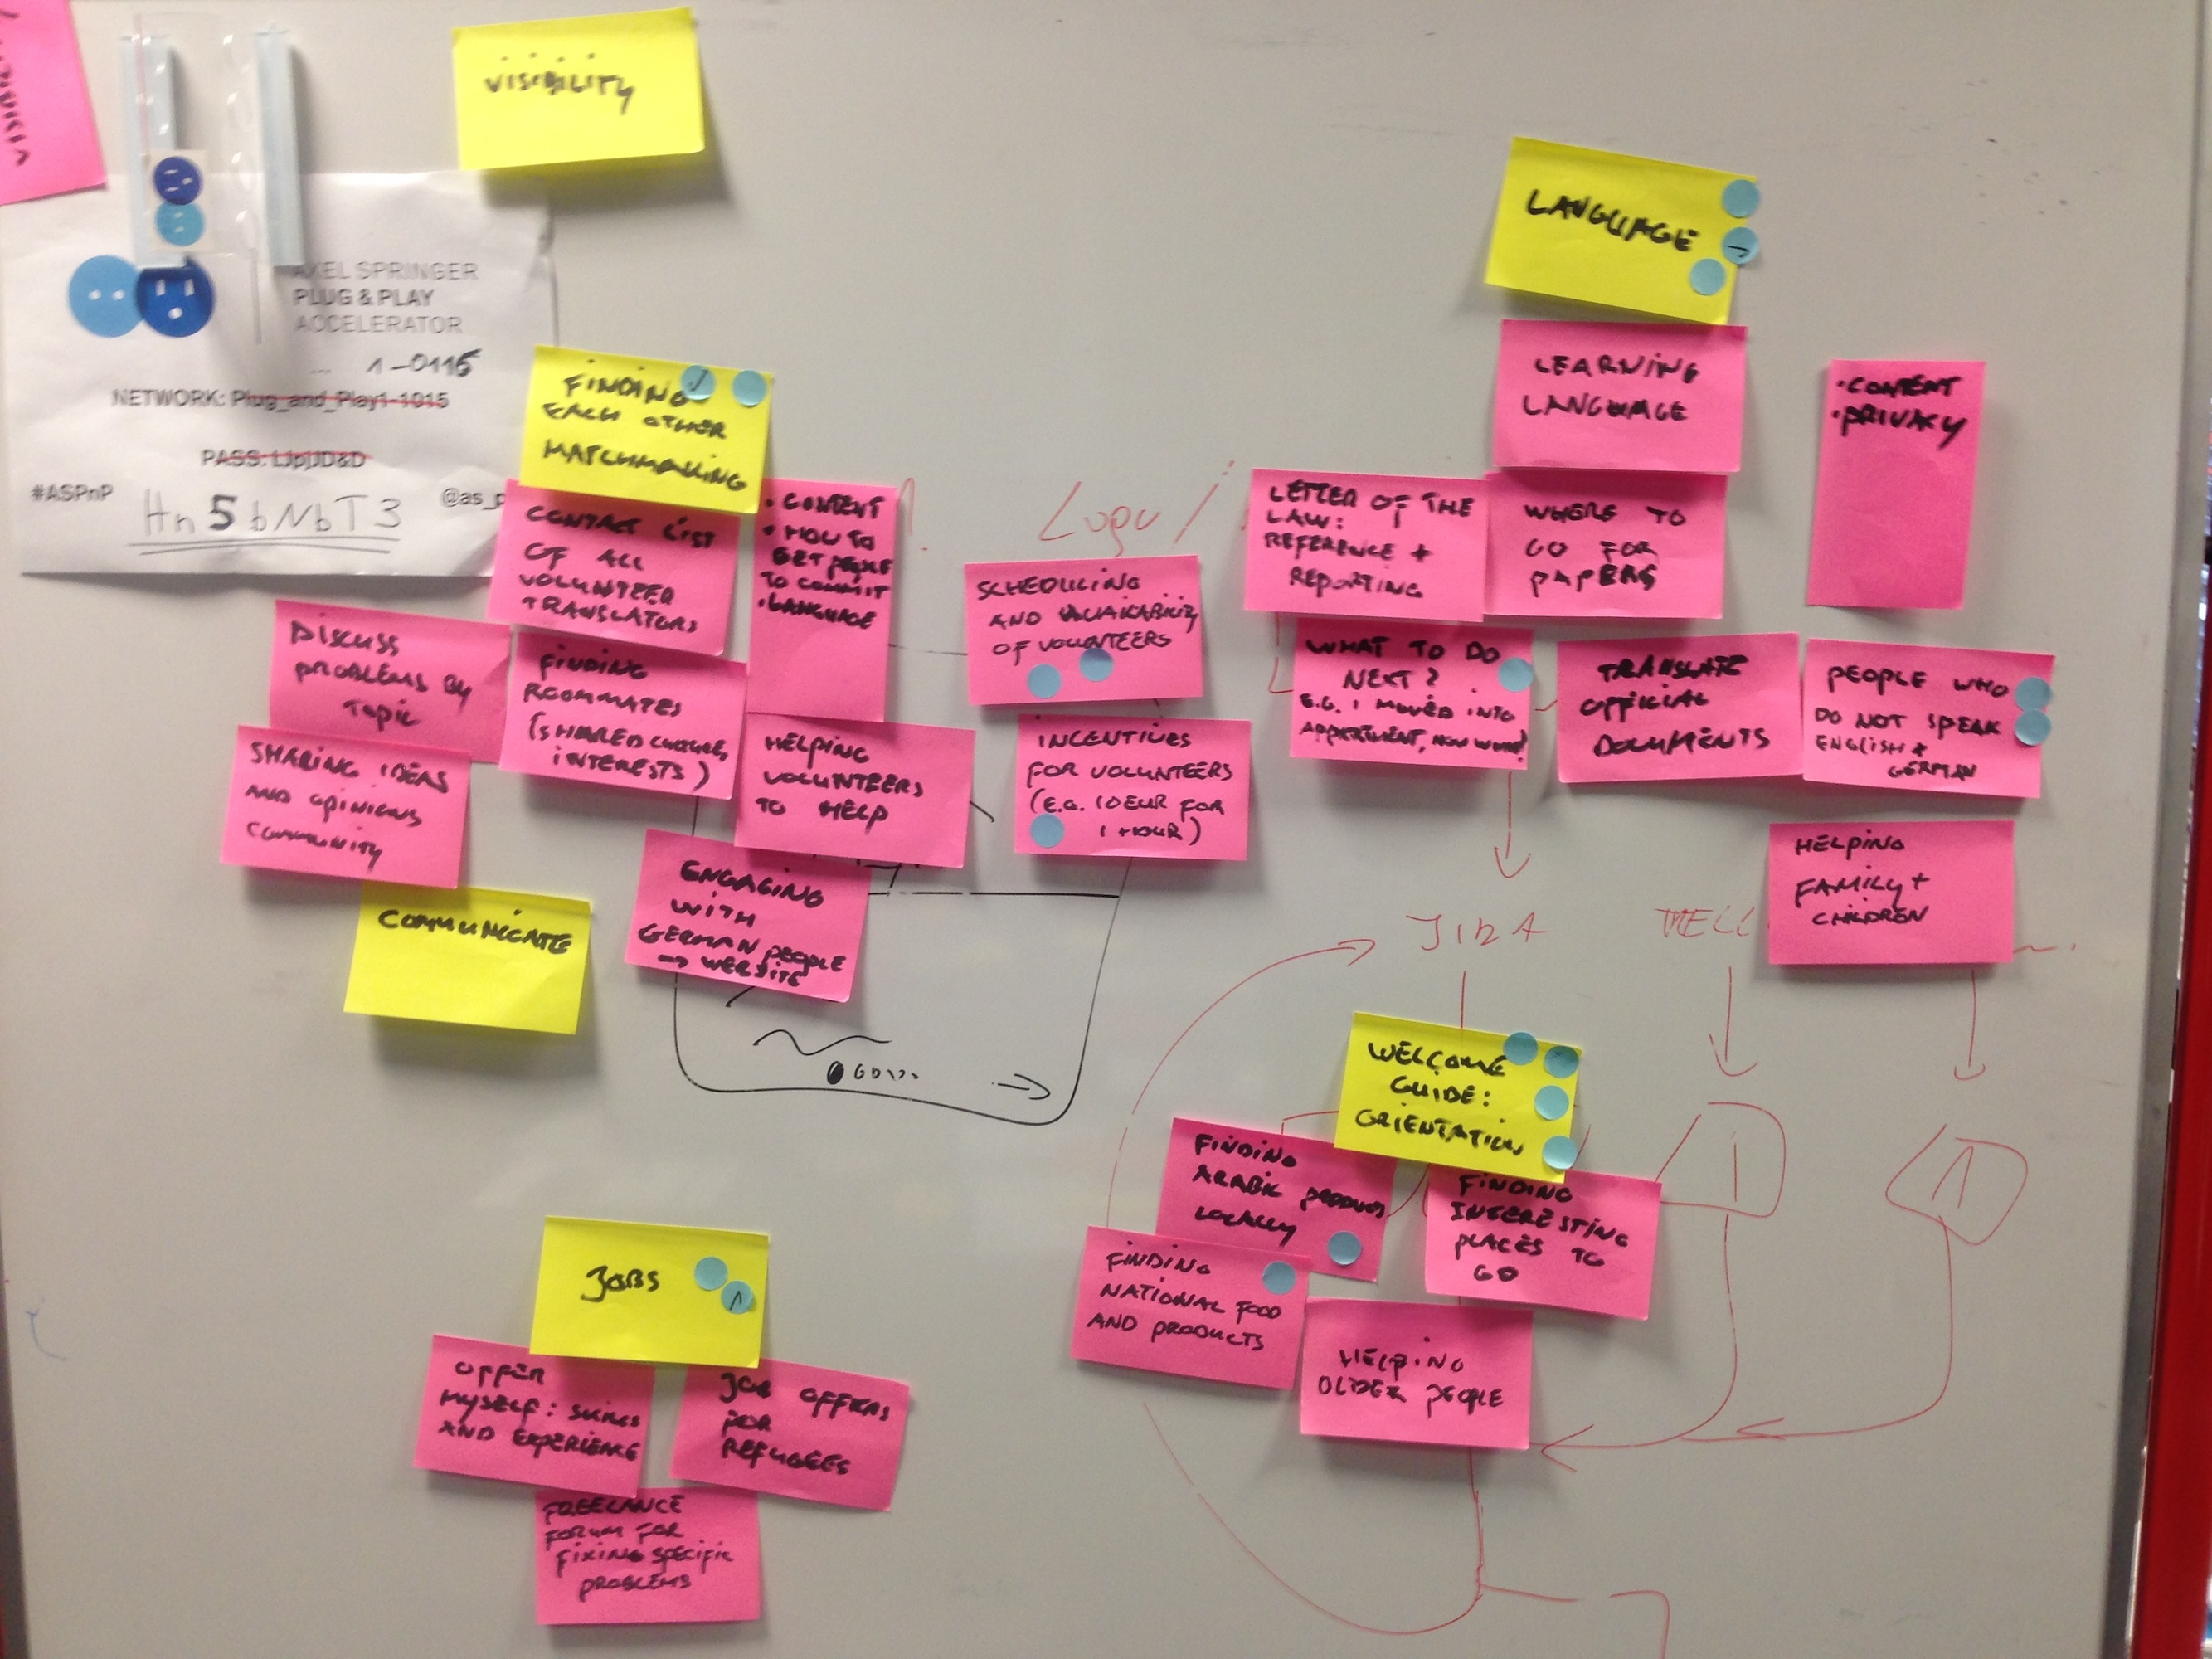 VISIBILITY
AXEL SPRINGER
PLUG & PLAY
ACCELERATOR
1-0116
NETWORK: Plug_and_Play1-1015
#ASPnP
Hn5bNbT3
@as_p
FINDING
EACH OTHER
MATCHMAKING
CONTACT LIST
OF ALL
VOLUNTEER
TRANSLATORS
• CONTENT
• HOW TO
GET PEOPLE
TO COMMIT
• LANGUAGE
DISCUSS
PROBLEMS BY
TOPIC
FINDING
ROOMMATES
(SHARED
INTERESTS)
SHARING IDEAS
AND OPINIONS
COMMUNITY
HELPING
VOLUNTEERS
TO HELP
ENGAGING
WITH
GERMAN PEOPLE
→ WEBSITE
COMMUNICATE
SCHEDULING
AND AVAILABILITY
OF VOLUNTEERS
INCENTIVES
FOR VOLUNTEERS
(E.G. 10EUR FOR
1 HOUR)
LANGUAGE
LEARNING
LANGUAGE
• CONTENT
• PRIVACY
LETTER OF THE
LAW:
REFERENCE +
REPORTING
WHERE TO
GO FOR
PAPERS
WHAT TO DO
NEXT?
E.G. I MOVED INTO
APPARTMENT, NOW WHAT?
TRANSLATE
OFFICIAL
DOCUMENTS
PEOPLE WHO
DO NOT SPEAK
ENGLISH +
GERMAN
HELPING
FAMILY +
CHILDREN
JIRA
WELCOME
GUIDE:
ORIENTATION
FINDING
ARABIC PRODUCTS
LOCALLY
FINDING
INTERESTING
PLACES TO
GO
FINDING
NATIONAL FOOD
AND PRODUCTS
HELPING
OLDER PEOPLE
JOBS
OFFER
MYSELF: SKILLS
AND EXPERIENCE
JOB OFFERS
FOR
REFUGEES
FREELANCE
FORUM FOR
FIXING SPECIFIC
PROBLEMS